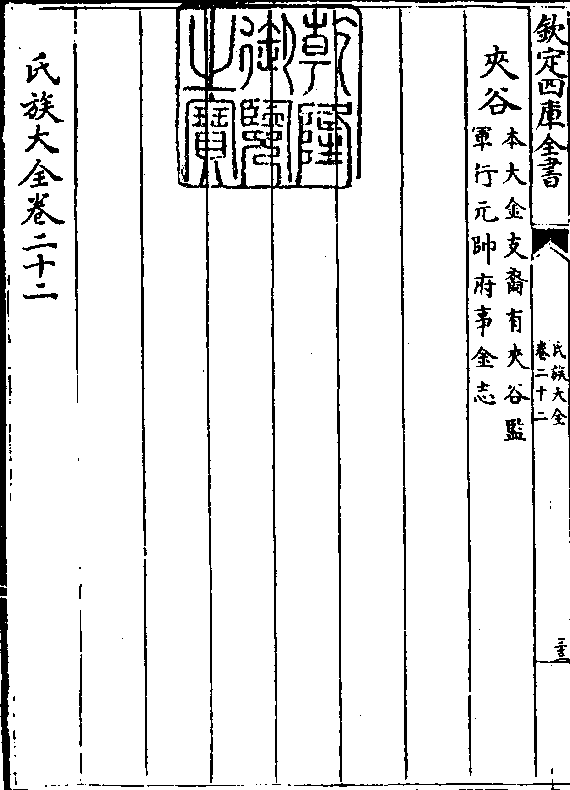 欽定四庫全書
氏族大全
卷二十二
夾谷
本大金支裔有夾谷監
軍行元帥府事金志
乾隆
御覽
之寶
氏族大全卷二十二